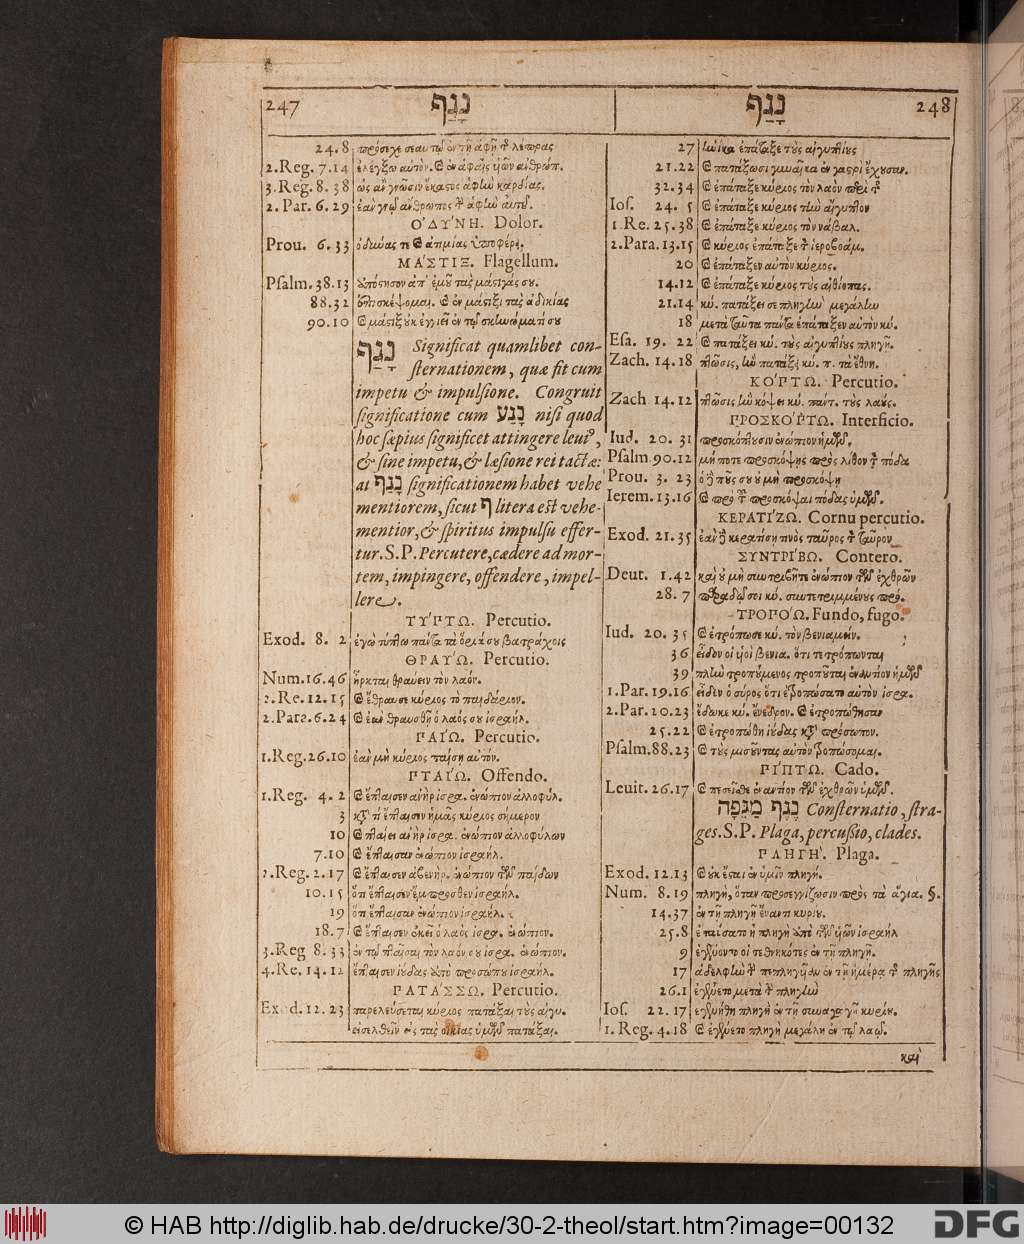 247 נָגַף
24.8 πρόσεχε σεαυτῷ ἐν τῇ ἁφῇ τ λέπρας
2.Reg. 7.14 ἐλέγξω αὐτὸν. ἐν ἁφαῖς υἱῶν ἀνθρώπ.
3.Reg. 8. 38 ὡς ἂν γνῶσιν ἕκαστος ἁφὴν καρδίας.
2. Par. 6.29 ἐὰν γνῷ ἄνθρωπος τ ἁφὴν αὐτοῦ.
ΟΔΥΝΗ. Dolor.
Prou. 6.33 ὀδύνας τε καὶ ἀτιμίας ὑποφέρει.
ΜΑΣΤΙΞ. Flagellum.
Psalm. 38.13 ἀπόστησον ἀπ' ἐμοῦ τὰς μάστιγάς σου.
88.32 ἐπισκέψομαι. καὶ ἐν μάστιξι τὰς ἀδικίας
90.10 καὶ μάστιξ οὐκ ἐγγιεῖ ἐν τῷ σκηνώματί σου
נָגַף Significat quamlibet con-
sternationem, quæ fit cum
impetu & impulsione. Congruit
significatione cum נָגַע nisi quod
hoc sæpius significet attingere leuiꝰ,
& sine impetu, & læsione rei tactæ:
at נָגַף significationem habet vehe
mentiorem, sicut ף litera est vehe-
mentior, & spiritus impulsu effer-
tur. S.P. Percutere, cædere ad mor-
tem, impingere, offendere, impel-
lere.
ΤΥΠΤΩ. Percutio.
Exod. 8. 2 ἐγὼ τύπτω πάντα τὰ ὅριά σου βατράχοις
ΘΡΑΥΩ. Percutio.
Num. 16.46 ἦρκται θραύειν τὸν λαόν.
2.Re. 12.15 καὶ ἔθραυσε κύριος τὸ παιδάριον.
2.Para. 6.24 καὶ ἐὰν θραυσθῇ ὁ λαός σου ἰσραήλ.
ΠΑΙΩ. Percutio.
1.Reg. 26.10 ἐὰν μὴ κύριος παίσῃ αὐτόν.
ΠΤΑΙΩ. Offendo.
1.Reg. 4. 2 καὶ ἔπταισεν ἀνὴρ ἰσρα. ἐνώπιον ἀλλοφύλ.
3 κατὰ τί ἔπταισεν ἡμᾶς κύριος σήμερον
10 καὶ πταίει ἀνὴρ ἰσρα. ἐνώπιον ἀλλοφύλων
7.10 καὶ ἔπταισαν ἐνώπιον ἰσραήλ.
2.Reg. 2.17 καὶ ἔπταισεν ἀβενὴρ. ἐνώπιον τῶν παίδων
10.15 ὅτι ἔπταισεν ἔμπροσθεν ἰσραήλ.
19 ὅτι ἔπταισαν ἐνώπιον ἰσραήλ.
18.7 καὶ ἔπταισεν ἐκεῖ ὁ λαὸς ἰσρα. ἐνώπιον.
3.Reg 8.33 ἐν τῷ πταῖσαι τὸν λαόν σου ἰσρα. ἐνώπιον.
4.Re. 14.12 ἔπταισεν ἰούδας ἀπὸ προσώπου ἰσραήλ.
ΠΑΤΑΣΣΩ. Percutio.
Exod. 12. 23 παρελεύσεται κύριος πατάξαι τοὺς αἰγυ.
εἰσελθεῖν εἰς τὰς οἰκίας ὑμῶν πατάξαι.
נָגַף 248
27 ἡνίκα ἐπάταξε τοὺς αἰγυπτίους
21.22 καὶ πατάξωσι γυναῖκα ἐν γαστρὶ ἔχουσαν.
32.34 καὶ ἐπάταξε κύριος τὸν λαὸν περὶ τ
Ios. 24. 5 καὶ ἐπάταξε κύριος τὴν αἴγυπτον
1.Re. 25.38 καὶ ἐπάταξε κύριος τὸν νάβαλ.
2.Para. 13.15 καὶ κύριος ἐπάταξε τ ἱεροβοάμ.
20 καὶ ἐπάταξεν αὐτὸν κύριος.
14.12 καὶ ἐπάταξε κύριος τοὺς αἰθίοπας.
21.14 κύ. πατάξει σε πληγὴν μεγάλην
18 μετὰ ταῦτα πάντα ἐπάταξεν αὐτὸν κύ.
Esa. 19. 22 καὶ πατάξει κύ. τοὺς αἰγυπτίους πληγῇ.
Zach. 14.18 πτῶσις, ἣν πατάξει κύ. π. τὰ ἔθνη.
ΚΟΠΤΩ. Percutio.
Zach 14.12 πτῶσις ἣν κόψει κύ. πάντ. τοὺς λαούς.
ΠΡΟΣΚΟΠΤΩ. Interficio.
Iud. 20. 31 προσκόπτουσιν ἐνώπιον ἡμῶν.
Psalm. 90.12 μή ποτε προσκόψῃς πρὸς λίθον τ πόδα
Prou. 3. 23 ὁ δὲ ποῦς σου οὐ μὴ προσκόψῃ
Ierem. 13.16 καὶ πρὸ τ προσκόψαι πόδας ὑμῶν.
ΚΕΡΑΤΙΖΩ. Cornu percutio.
Exod. 21.35 ἐὰν δὲ κερατίσῃ τινὸς ταῦρος τ ταῦρον
ΣΥΝΤΡΙΒΩ. Contero.
Deut. 1.42 καὶ οὐ μὴ συντριβῆτε ἐνώπιον τῶν ἐχθρῶν
28. 7 παραδῷ σοι κύ. συντετριμμένους πρό.
ΤΡΟΠΟΩ. Fundo, fugo.
Iud. 20. 35 καὶ ἐτρόπωσε κύ. τὸν βενιαμίν.
36 εἶδον οἱ υἱοὶ βενια. ὅτι τετρόπωνται
39 πλὴν τροπούμενος τροποῦται ἐναντίον ἡμῶν
1.Par. 19.16 εἶδεν ὁ σύρος ὅτι ἐτροπώσατο αὐτὸν ἰσρα.
2.Par. 20.23 ἔδωκε κύ. ἔνεδρον. καὶ ἐτροπώθησαν
25.22 καὶ ἐτροπώθη ἰούδας κατὰ πρόσωπον.
Psalm. 88.23 καὶ τοὺς μισοῦντας αὐτὸν τροπώσομαι.
ΠΙΠΤΩ. Cado.
Leuit. 26.17 καὶ πεσεῖσθε ἐναντίον τῶν ἐχθρῶν ὑμῶν.
נֶגֶף מַגֵּפָה Consternatio, stra-
ges. S.P. Plaga, percussio, clades.
ΠΛΗΓΗ. Plaga.
Exod. 12.13 καὶ οὐκ ἔσται ἐν ὑμῖν πληγή.
Num. 8.19 πληγὴ, ὅταν προσεγγίζωσιν πρὸς τὰ ἅγια. §.
14.37 ἐν τῇ πληγῇ ἔναντι κυρίου.
25.8 ἐπαύσατο ἡ πληγὴ ἀπὸ τῶν υἱῶν ἰσραήλ
9 ἐγένοντο οἱ τεθνηκότες ἐν τῇ πληγῇ.
17 ἀδελφὴν τ πεπληγυῖαν ἐν τῇ ἡμέρᾳ τ πληγῆς
26.1 ἐγένετο μετὰ τ πληγὴν
Ios. 22. 17 ἐγενήθη πληγὴ ἐν τῇ συναγωγῇ κυρίου.
1. Reg. 4.18 καὶ ἐγένετο πληγὴ μεγάλη ἐν τῷ λαῷ.
καὶ
© HAB http://diglib.hab.de/drucke/30-2-theol/start.htm?image=00132
DFG